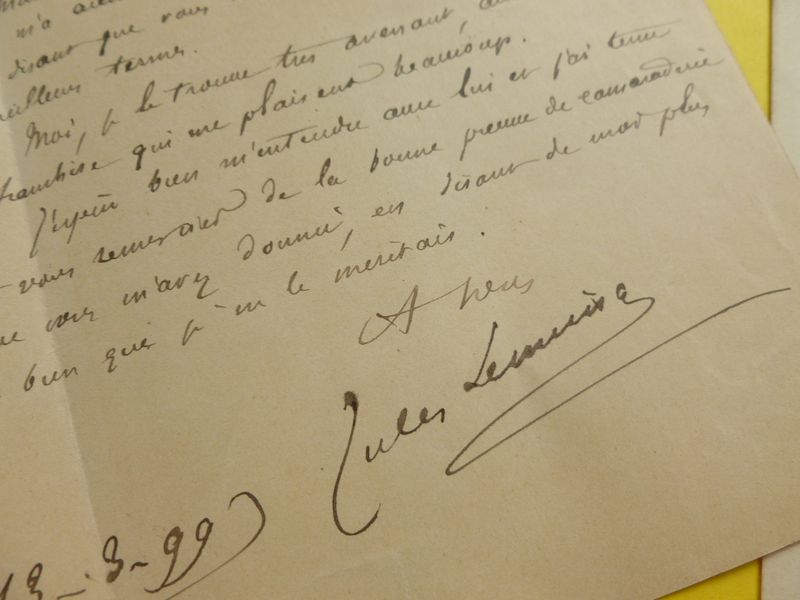 m'a
disant que vous
meilleurs termes.
Moi, je le trouve très avenant,
franchise qui me plaisent beaucoup.
J'espère bien m'entendre avec lui et j'ai tenu
vous remercier de la bonne preuve de camaraderie
que vous m'avez donné, en disant de moi plus
bien que je ne le meritais.
A vous
Jules Lemaire
13-3-99